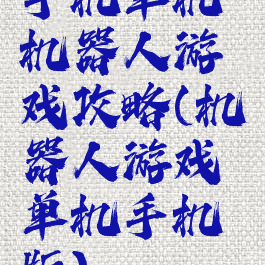 手机单机
机器人游
戏攻略(机
器人游戏
单机手机
版)